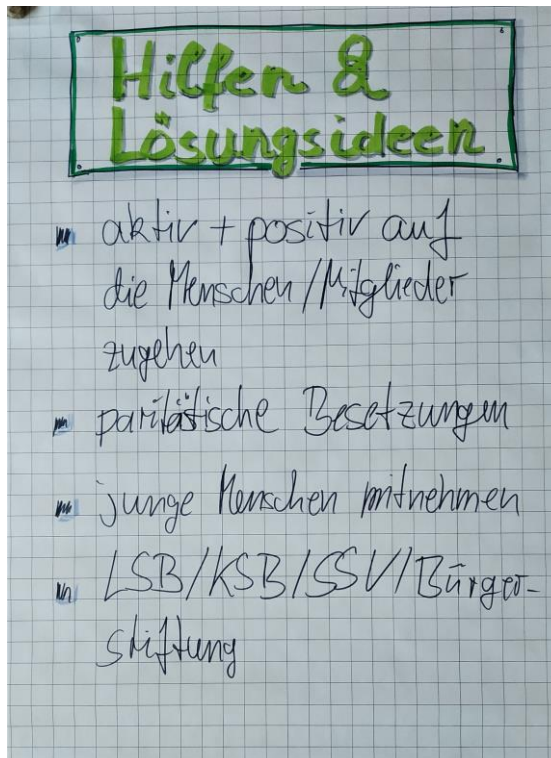 Hilfen &
Lösungsideen
aktiv + positiv auf
die Menschen/Mitglieder
zugehen
paritätische Besetzungen
junge Menschen mitnehmen
LSB/KSB/SSV/Bürger-
stiftung